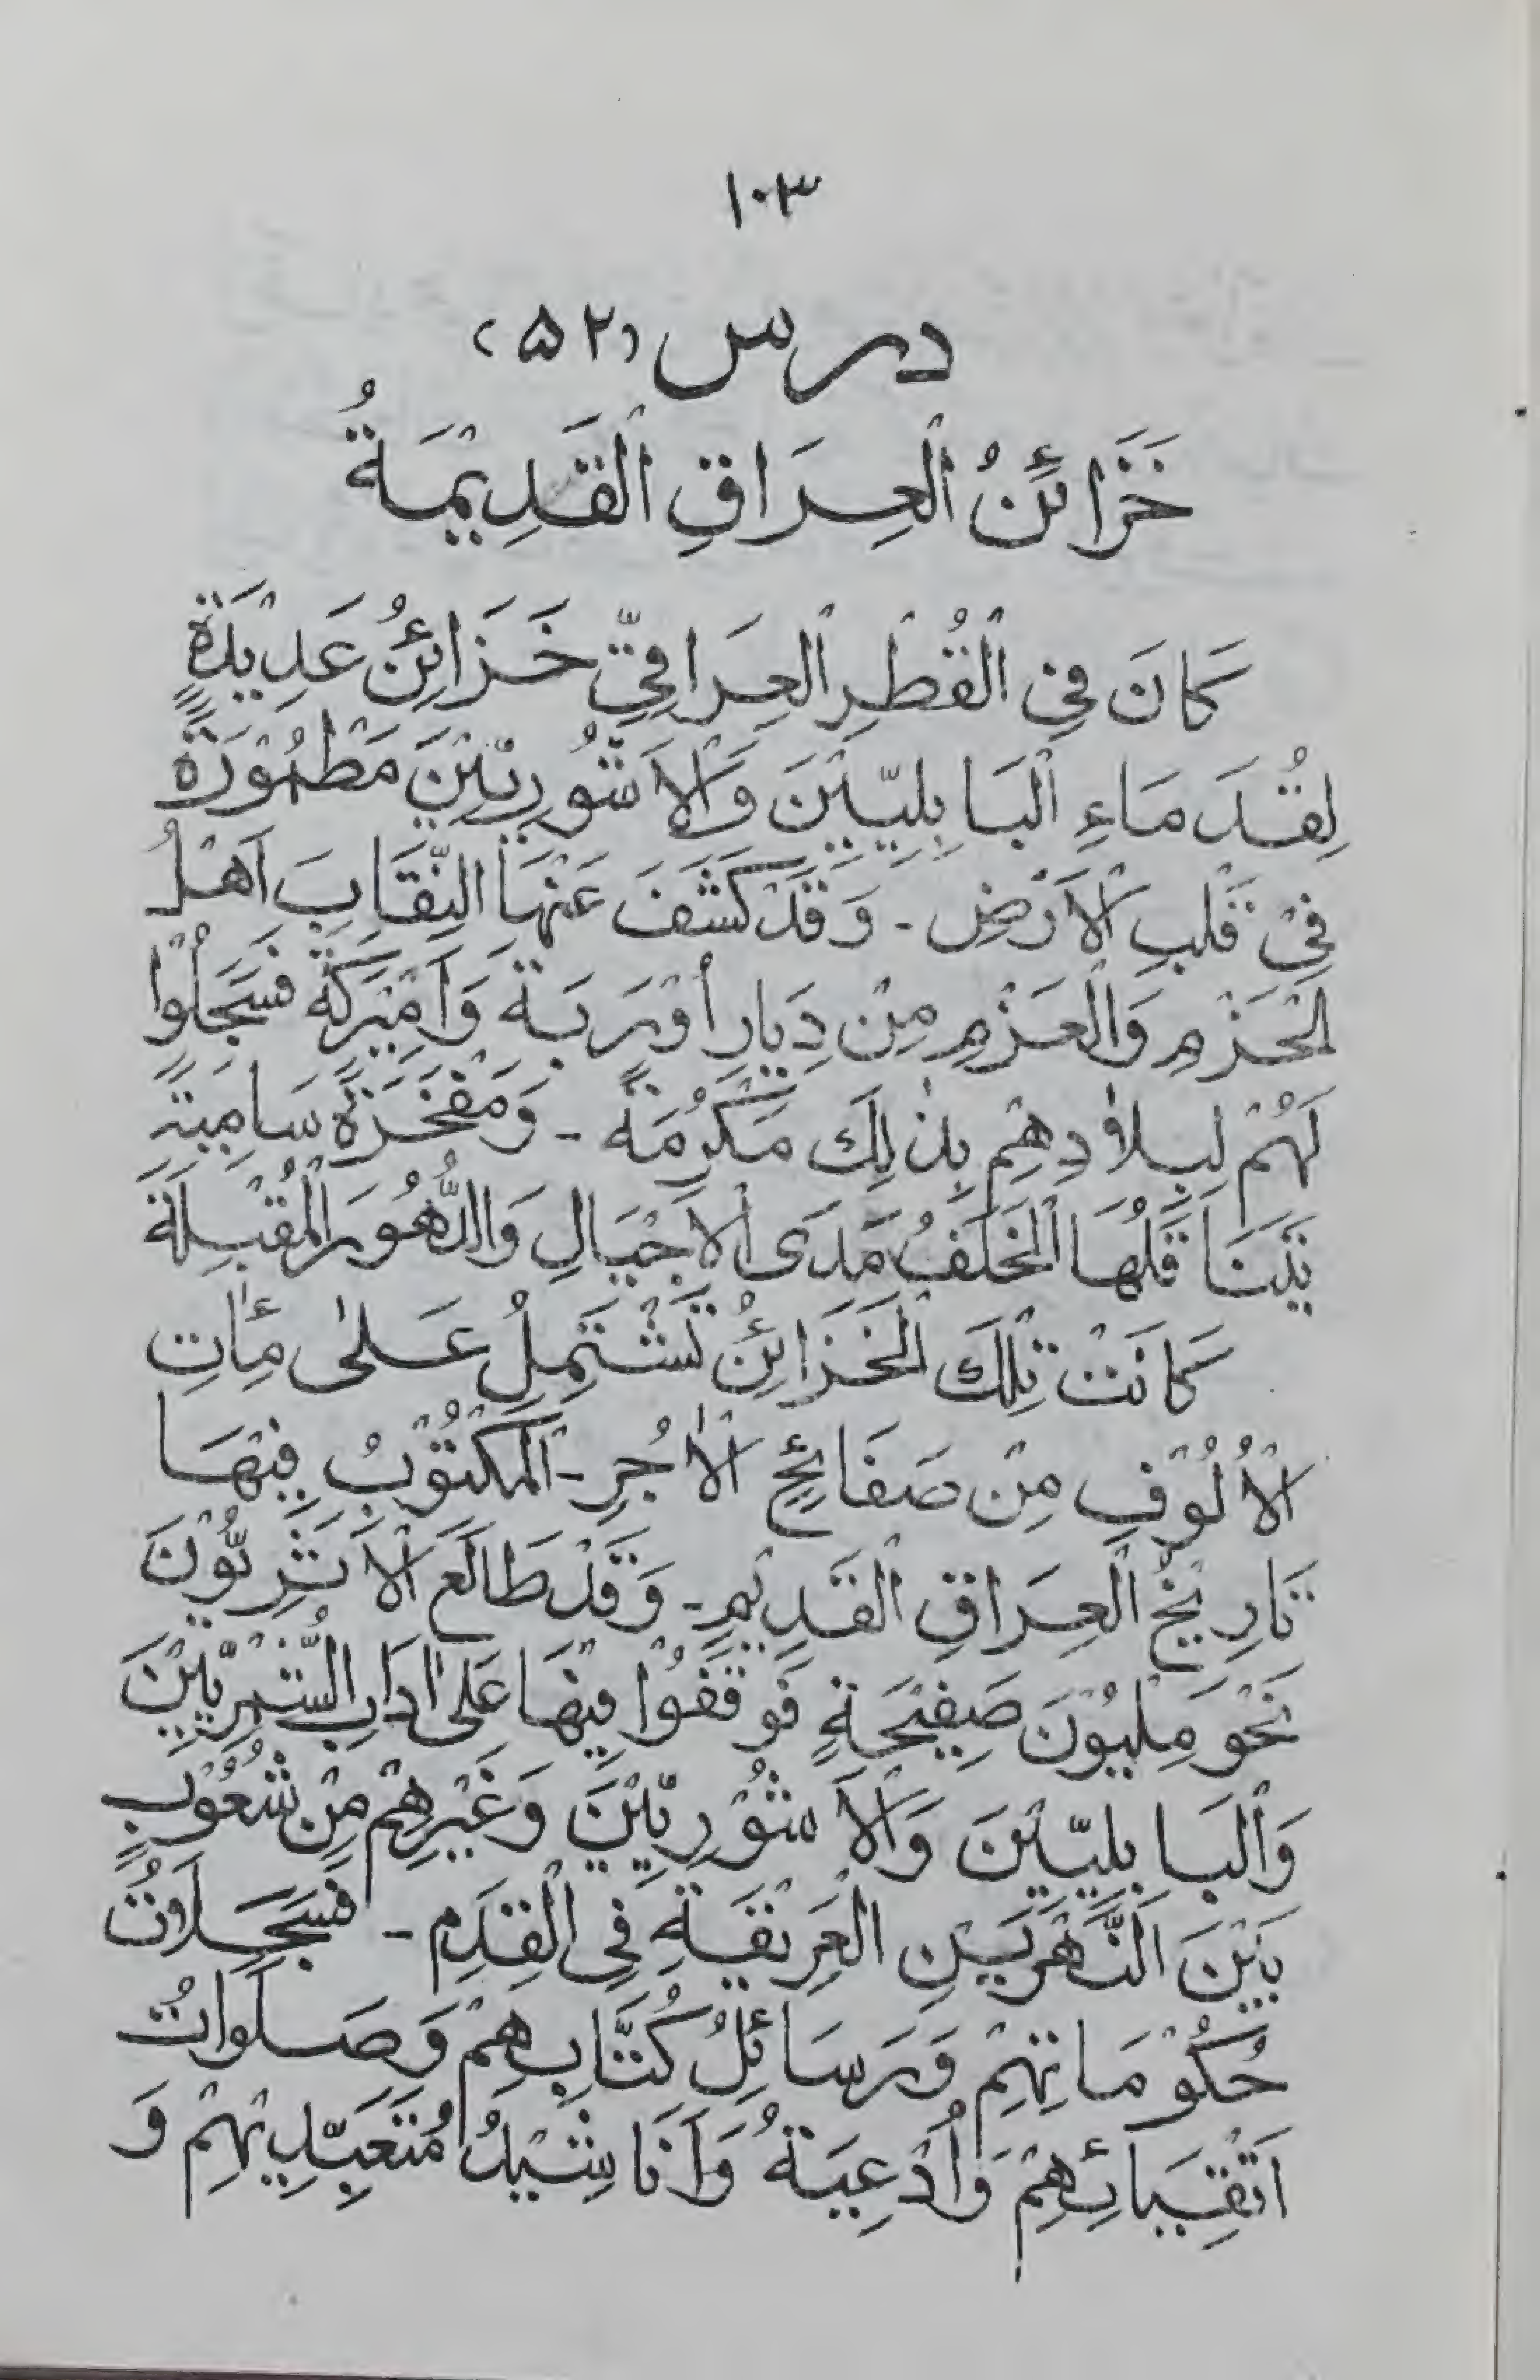 ۱۰۳
درس (۵۲)
خَزَائِنُ الْعِرَاقِ الْقَدِيْمَةُ
كَانَ فِي الْقُطْرِ الْعِرَاقِيِّ خَزَائِنُ عَدِيْدَةٍ
لِقُدَمَاءِ الْبَابِلِيِّيْنَ وَالْاَشُّوْرِيِّيْنَ مَطْمُوْرَةً
فِيْ قَلْبِ الْاَرْضِ - وَقَدْ كَشَفَ عَنْهَا النِّقَابَ اَهْلُ
الْحَزْمِ وَالْعَزْمِ مِنْ دِيَارِ أُوْرَبَةَ وَاَمِيْرِكَةَ فَسَجَّلُوْا
لَهُمْ لِبِلَادِهِمْ بِذٰلِكَ مَكْرُمَةً - وَمَفْخَرَةً سَامِيَةً
يَتَنَاقَلُهَا الْخَلَفُ مَدَى الْاَجْيَالِ وَالدُّهُوْرِ الْمُقْبِلَةِ
كَانَتْ تِلْكَ الْخَزَائِنُ تَشْتَمِلُ عَلٰى مِأٰتِ
الْأُلُوْفِ مِنْ صَفَائِحِ الْاٰجُرِ - الْمَكْتُوْبُ فِيْهَا
تَارِيْخُ الْعِرَاقِ الْقَدِيْمِ - وَقَدْ طَالَعَ الْاَثَرِيُّوْنَ
نَحْوَ مِلْيُوْنَ صَفِيْحَةٍ فَوَقَفُوْا فِيْهَا عَلٰى اٰدَابِ السُّمَرِيِّيْنَ
وَالْبَابِلِيِّيْنَ وَالْاَشُوْرِيِّيْنَ وَغَيْرِهِمْ مِنْ شُعُوْبِ
بَيْنَ النَّهْرَيْنِ الْعَرِيْقَةِ فِي الْقِدَمِ - فَسَجِلَّاتُ
حُكُوْمَاتِهِمْ وَرَسَائِلُ كُتَّابِهِمْ وَصَلَوَاتُ
اَتْقِيَائِهِمْ وَأَدْعِيَةُ وَاَنَاشِيْدُ مُتَعَبِّدِيْهِمْ وَ